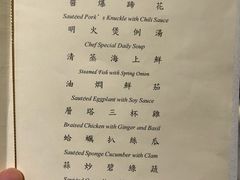 醬爆蹄花
Sautéed Pork's Knuckle with Chili Sauce
明火煲例湯
Chef Special Daily Soup
清蒸海上鮮
Steamed Fish with Spring Onion
油燜鮮茄
Sautéed Eggplant with Soy Sauce
層塔三杯雞
Braised Chicken with Ginger and Basil
蛤蠣扒絲瓜
Sautéed Sponge Cucumber with Clam
蒜炒碧綠蔬